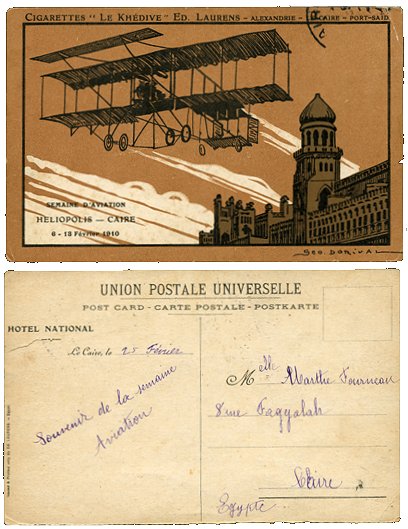 CIGARETTES "LE KHÉDIVE" ED. LAURENS - ALEXANDRIE - LE CAIRE - PORT-SAÏD
SEMAINE D'AVIATION
HELIOPOLIS — CAIRE
6 - 13 Février 1910
GEO DORIVAL
UNION POSTALE UNIVERSELLE
POST CARD - CARTE POSTALE - POSTKARTE
HOTEL NATIONAL
Le Caire, le 25 Février
Souvenir de la semaine
Aviation
Melle Marthe Fourneau
Faggalah
Caire
Egypte